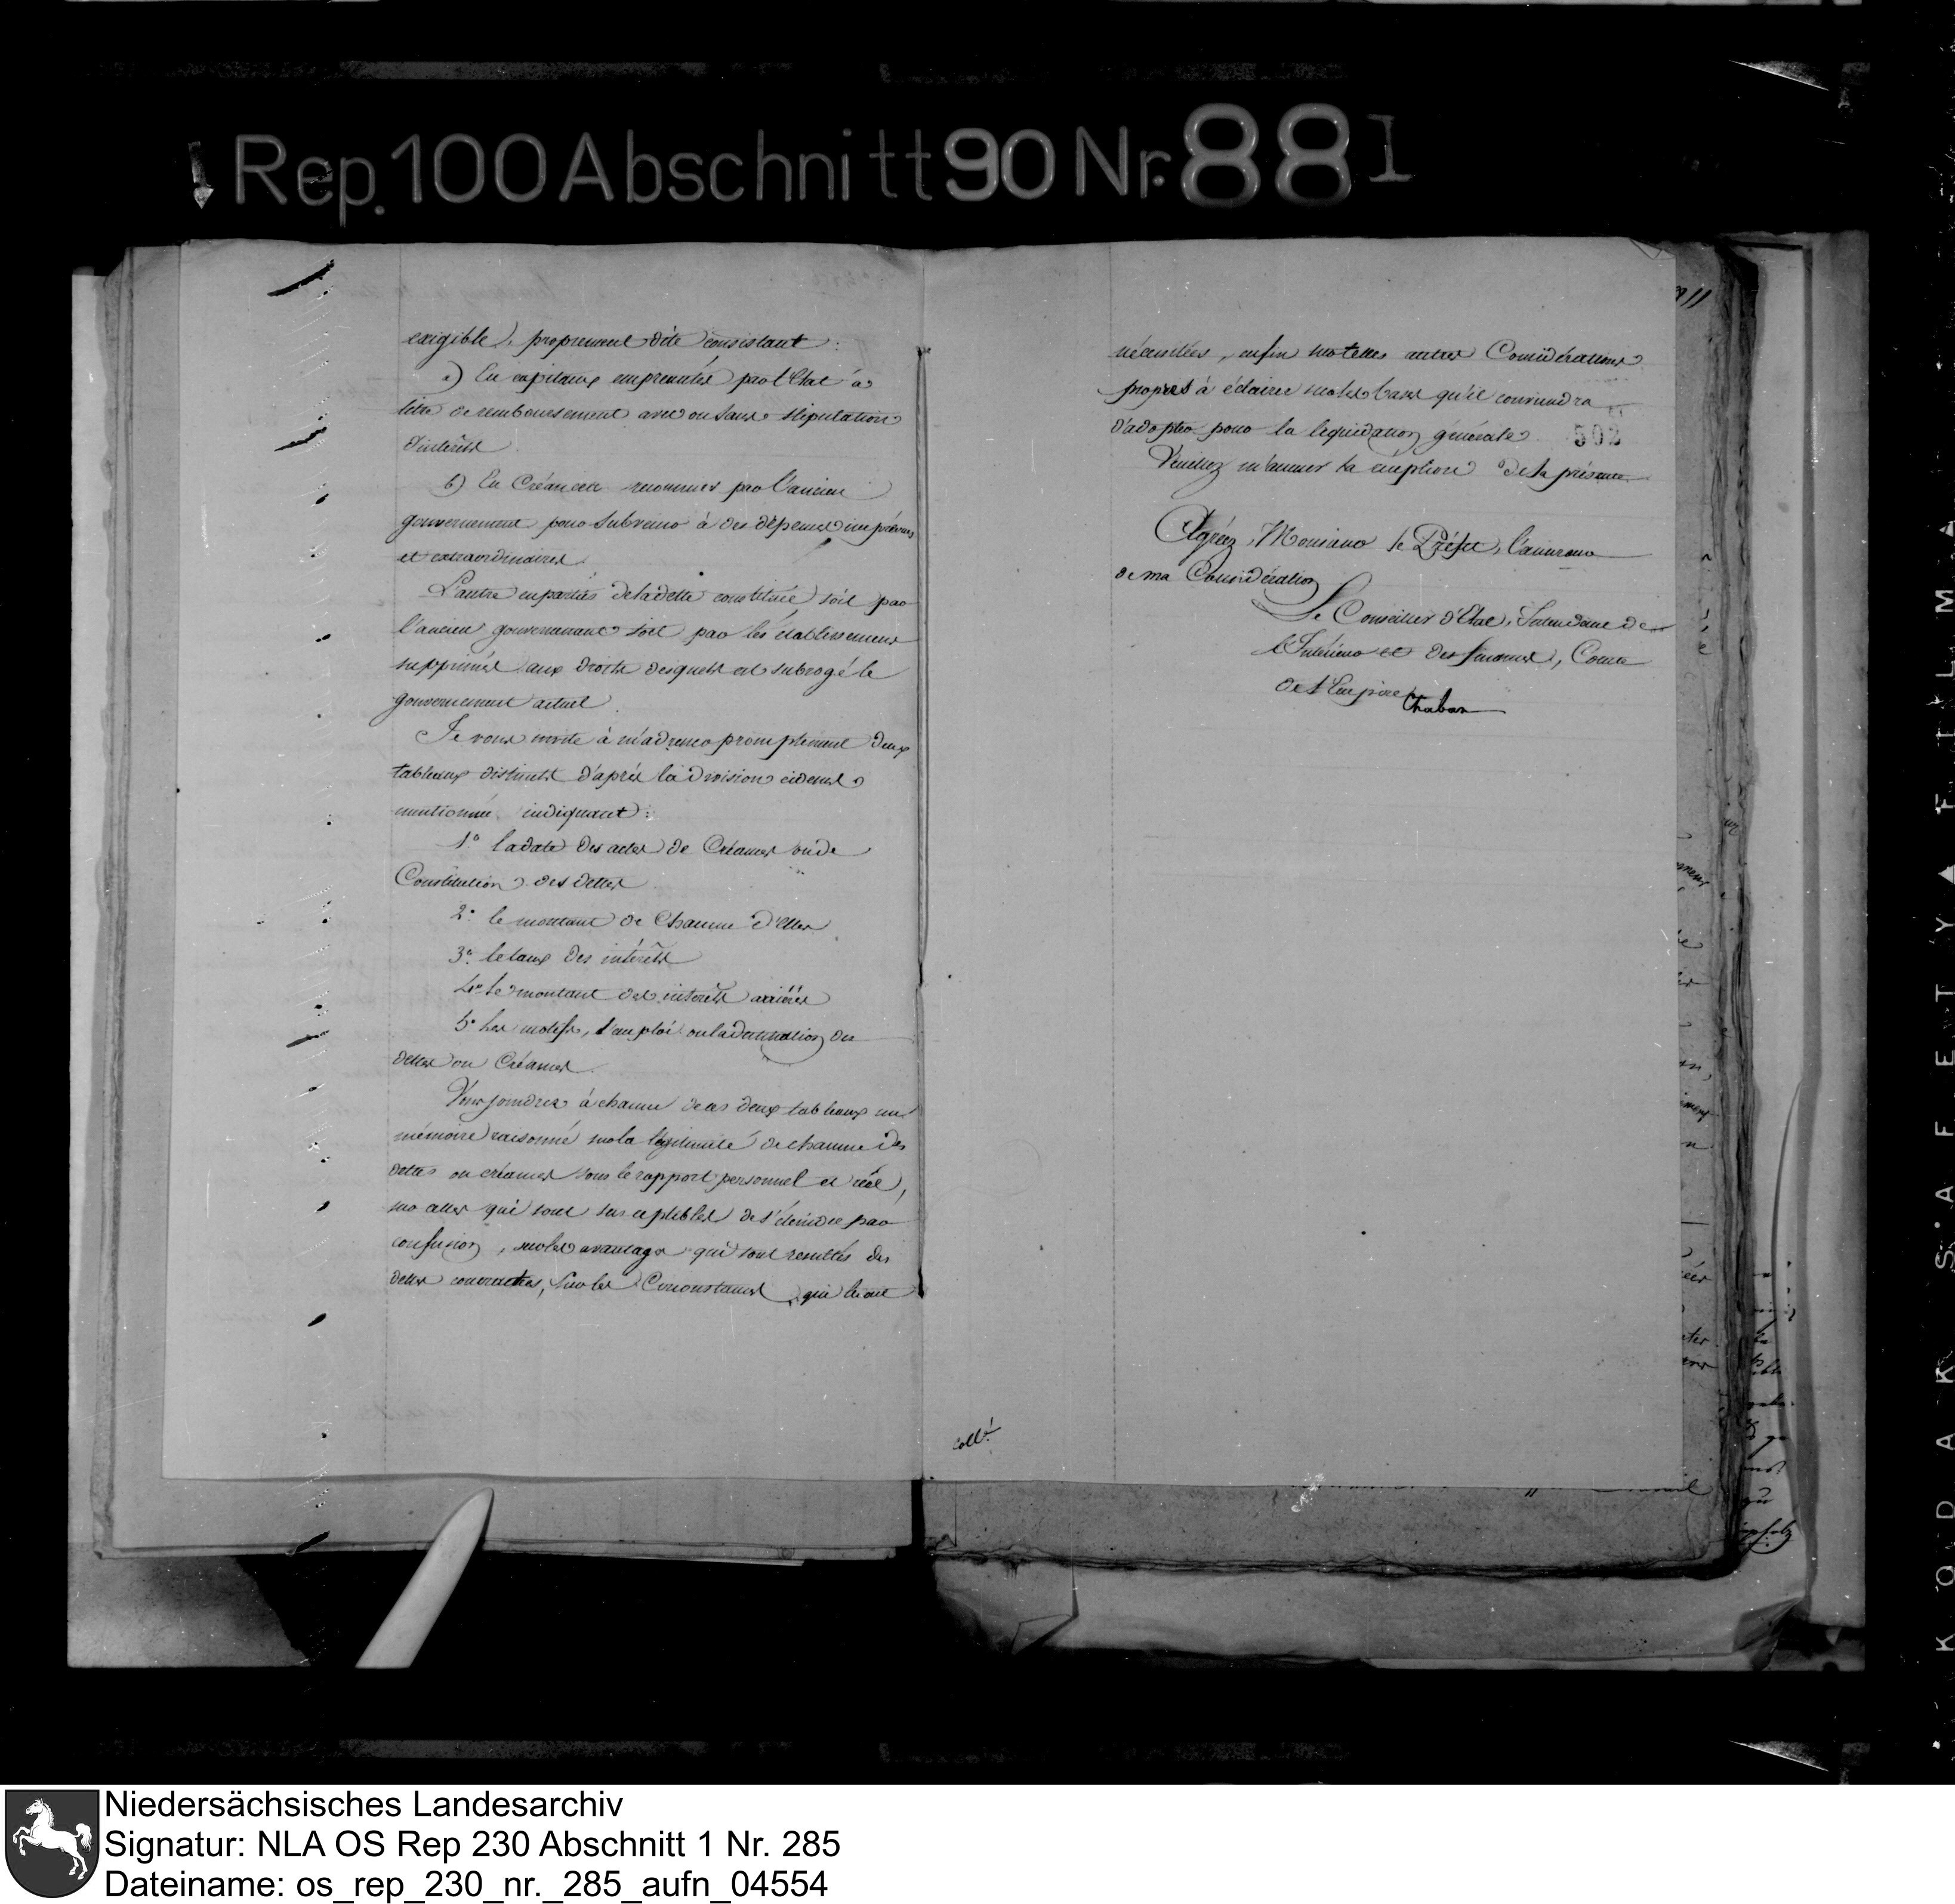 Rep. 100 Abschnitt 90 Nr. 88 I
exigible, proprement dite consistant :
a) En capitaux empruntés par l'Etat à
titre de remboursement avec ou sans stipulation
d'intérêts
b) En Créances reconnues par l'ancien
gouvernement pour subvenir à des dépenses imprévues
et extraordinaires.
L'autre en parties de la dette constituée soit par
l'ancien gouvernement soit par les établissemens
supprimés aux droits desquels est subrogé le
gouvernement actuel.
Je vous invite à m'adresser promptement deux
tableaux distincts d'après la division cidessus
mentionnée indiquant :
1° la date des actes de Créances ou de
Constitution des dettes
2° le montant de Chacune d'elles
3° le taux des intérêts
4° le montant des intérêts arriérés
5° les motifs, l'emploi ou la destination des
dettes ou Créances.
Vous joindrez à chacun de ces deux tableaux un
mémoire raisonné sur la légitimité de chacune des
dettes ou créances sous le rapport personnel et réel,
sur celles qui sont susceptibles de s'éteindre par
confusion, sur les avantages qui sont résultés des
dettes contractées, sur les Circonstances qui les ont
nécessitées, enfin sur telles autres Considérations
propres à éclairer sur les bases qu'il conviendra
d'adopter pour la liquidation générale.
502
Veuillez m'accuser la réception de la présente
Agréez, Monsieur le Préfet, l'assurance
de ma Considération
Le Conseiller d'Etat, Intendant de
l'Intérieur et des finances, Comte
de l'Empire
Chaban
collé
KODAK SAFETY FILM
Niedersächsisches Landesarchiv
Signatur: NLA OS Rep 230 Abschnitt 1 Nr. 285
Dateiname: os_rep_230_nr._285_aufn_04554